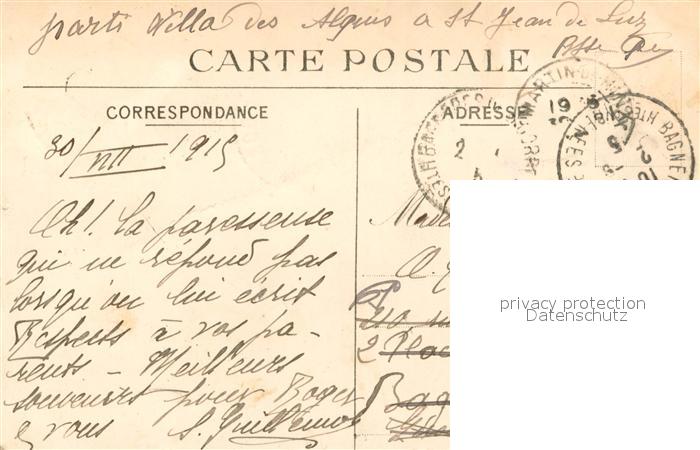 parti Villa des Algues a St Jean de Luz
Bsse Pyr
CARTE POSTALE
CORRESPONDANCE
ADRESSE
30/VIII 1915
Ah! la paresseuse
qui ne répond pas
lorsqu'on lui écrit
Respects à vos pa-
rents - Meilleurs
souvenirs pour Roger
& vous S. Guillemot
Made
2 Plac
Bag
privacy protection
Datenschutz